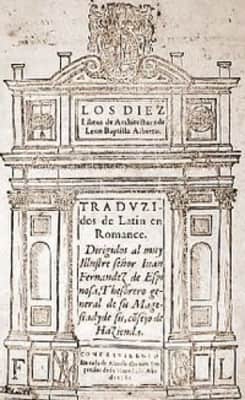 LOS DIEZ
Libros de Architectura de
Leon Baptista Alberto.
TRADVZI-
dos de Latin en
Romance.
Dirigidos al muy
Illustre señor Iuan
Fernandez de Espi
nosa, Thesorero ge
neral de su Mage-
stad, y de su cōsejo de
Hazienda.
CON PREVILEGIO
En casa de Alonso Gomez
F
L